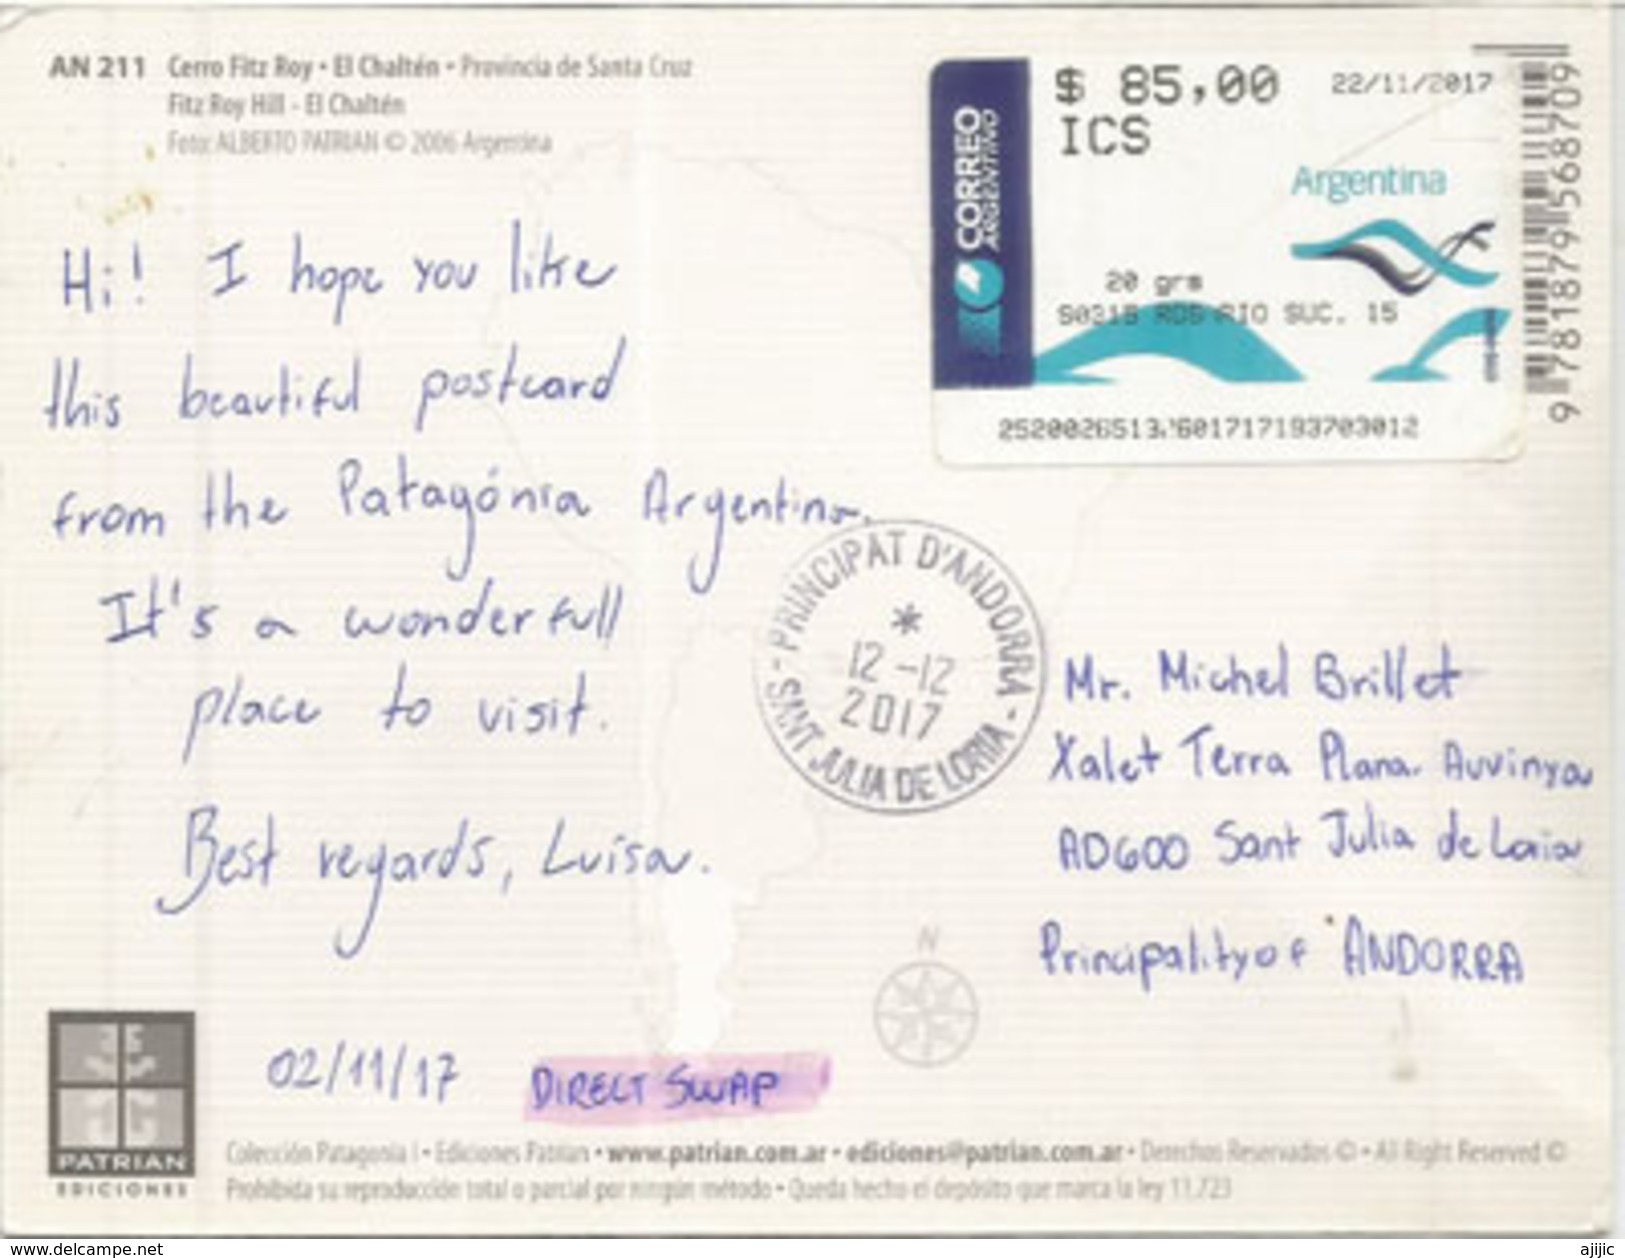 AN 211 Cerro Fitz Roy • El Chaltén • Provincia de Santa Cruz
Fitz Roy Hill - El Chaltén
Foto: ALBERTO PATRIAN © 2006 Argentina
CORREO
ARGENTINO
$ 85,00
ICS
22/11/2017
Argentina
20 grs
SUC. 15
9781879568709
Hi! I hope you like
this beautiful postcard
from the Patagónia Argentina.
It's a wonderfull
place to visit.
Best regards, Luisa.
02/11/17
DIRECT SWAP
- PRINCIPAT D'ANDORRA -
*
12-12
2017
SANT JULIA DE LORIA
Mr. Michel Brillet
Xalet Terra Plana. Auvinya
AD600 Sant Julia de Loria
Principality of ANDORRA
N
PATRIAN
EDICIONES
Colección Patagonia I • Ediciones Patrian • www.patrian.com.ar • ediciones@patrian.com.ar • Derechos Reservados © • All Right Reserved ©
Prohibida su reproducción total o parcial por ningún método • Queda hecho el depósito que marca la ley 11.723
www.delcampe.net
ajijic